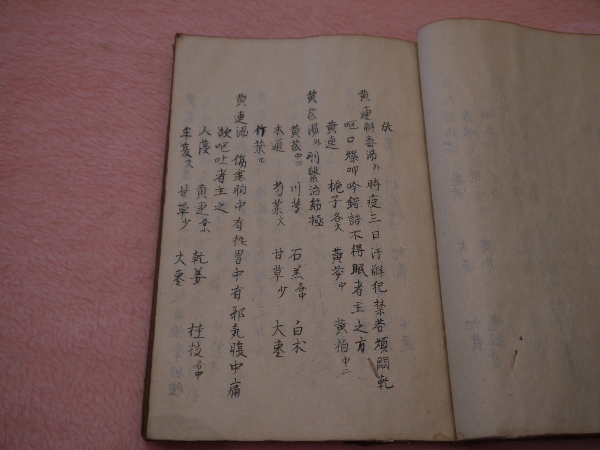 於
黄連解毒湯外 時疫三日汗解犯禁苦煩悶乾
呕口燥呻吟錯語不得眠者主之方
黄連 梔子各大 黄芩中 黄栢中二
黄芪湯外 刑繁治筋極
黄芪中二 川芎 石羔各中 白朮
木通 芍薬大 甘草少 大棗
竹葉大
黄連湯 傷寒胸中有熱胃中有邪気腹中痛
欲呕吐者主之
人參 黄連 乾姜 桂枝各中
半夏大 甘草少 大棗